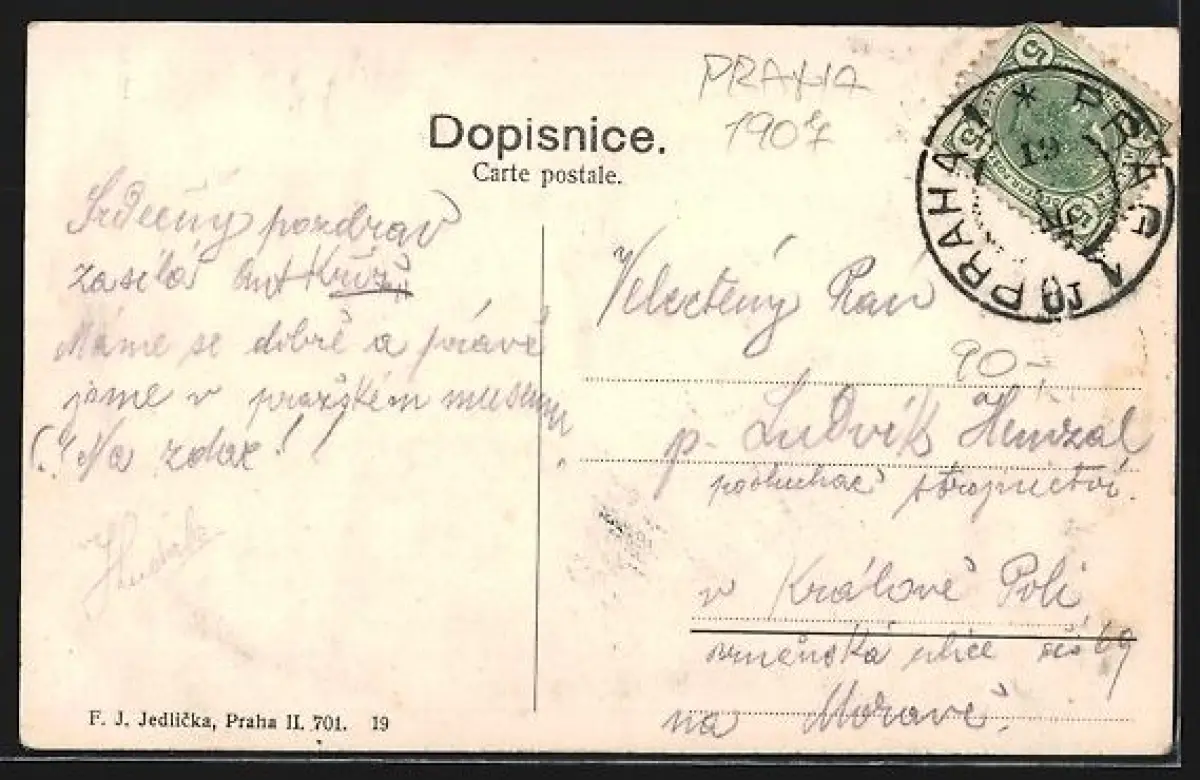 PRAHA
1907
Dopisnice.
Carte postale.
PRAHA 1 * PRAG 1
5
Srdečný pozdrav
zasílá Ant Kříž
Máme se dobře a právě
jsme v pražském museum
Na zdar!
Velectěný Pan
90-
p. Ludvík
posluchač strojnictví.
v Králově Poli
ulice čís 69
na Moravě.
F. J. Jedlička, Praha II. 701. 19